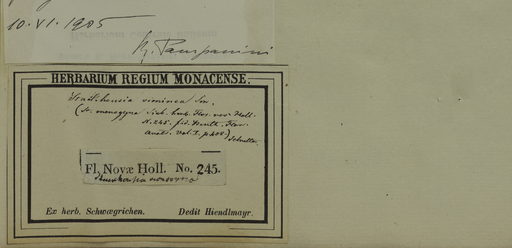 10. VI. 1905
R. Pampanini
HERBARIUM REGIUM MONACENSE.
viminea Sm.
(St. monogyna Sieb. herb. Flor. nov. Holl.
N. 245. fid. Benth. Flor.
austr. vol. I. p. 408.)
Fl. Novæ Holl. No. 245.
Ex herb. Schwægrichen. Dedit Hiendlmayr.